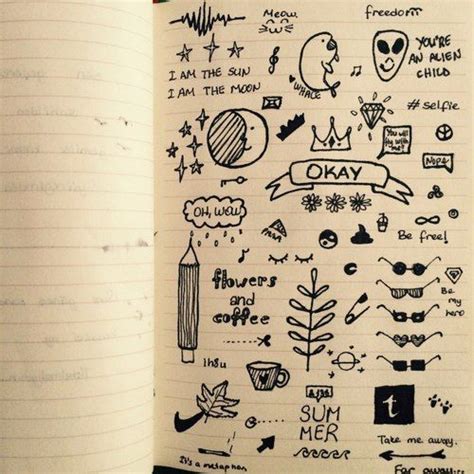 Meow.
freedom
I AM THE SUN
I AM THE MOON
WHALE
YOU'RE
AN ALIEN
CHILD
#selfie
You will
fly with
me?
NOPE
OKAY
OH, WOW
Be free!
flowers
and
coffee
Be
my
hero
ihsu
SUM
MER
t
Take me away.
It's a metaphor
Far away...